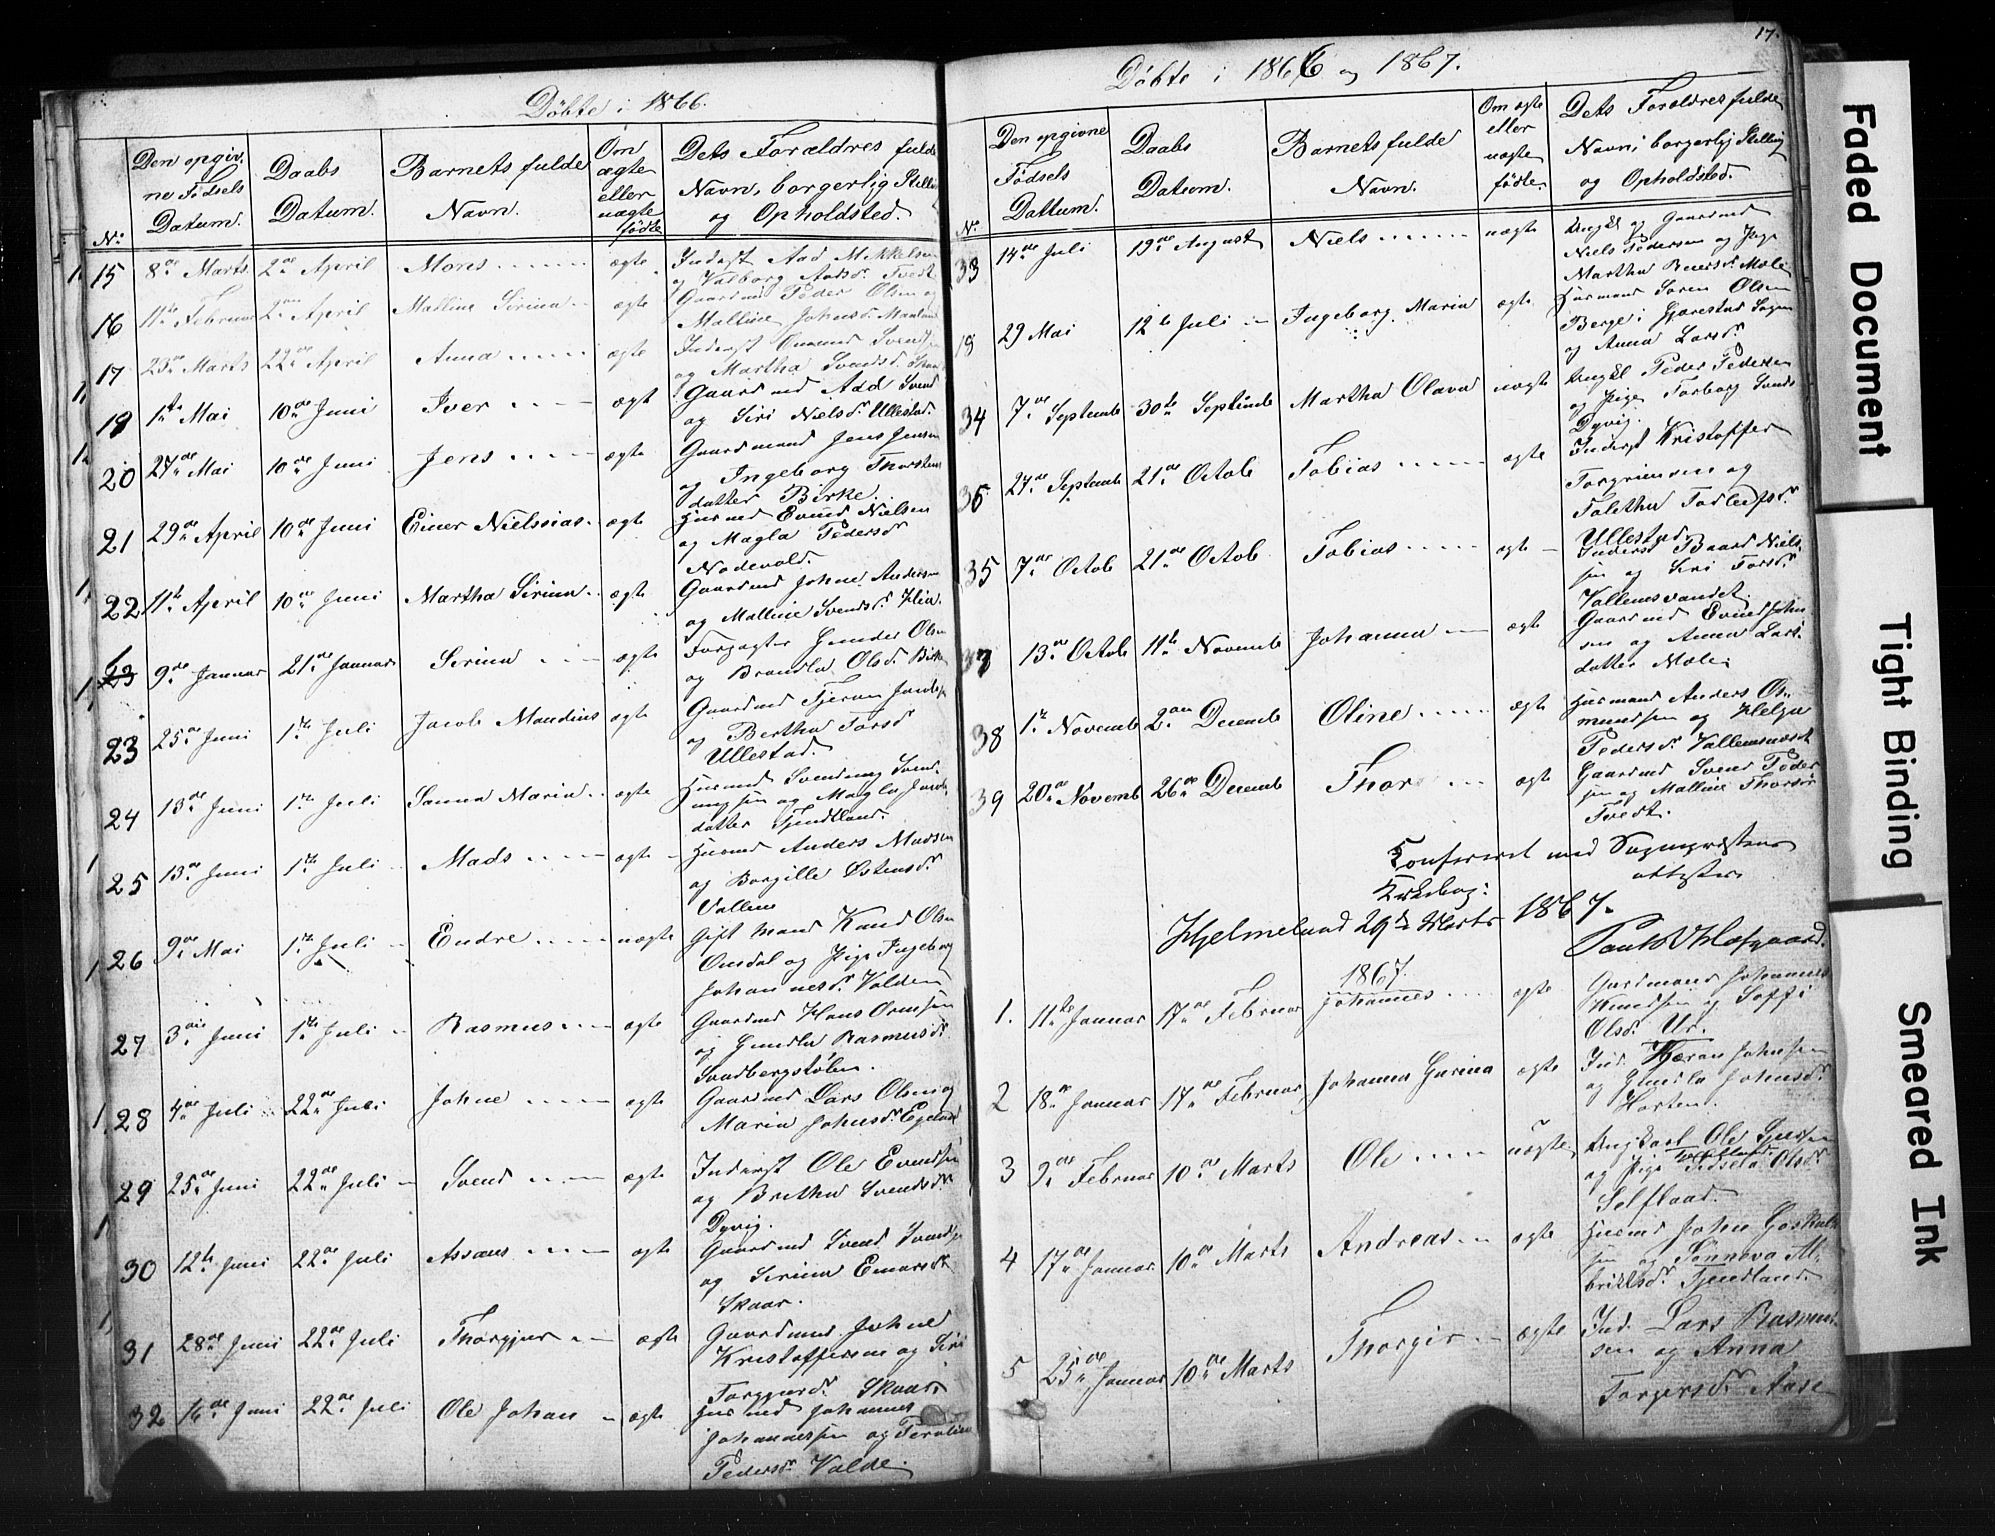 Döbte i 1866.
No.
Den opgivne Födsels Datum.
Daabs Datum.
Barnets fulde Navn.
Om ægte eller uægte födte
Dets Forældres fulde Navn, borgerlig Stilling og Opholdsted.
15 8de Marts 2den April Mons ægte Inderst Aad Mikkelsen
og Valborg Aadsd. Tvedt
16 11te Februar 2den April Malline Serina ægte Gaardmd Peder Olsen og
Malline Johnsd.
17 23de Marts 22de April Anna ægte Inderst Gunund Svends
og Martha Svendsd.
19 1te Mai 10de Juni Iver ægt Gaardmd Aad Svend
og Siri Nielsd. Ullestad.
20 27de Mai 10de Juni Jens ægte Gaardmand Jens Jensen
og Ingeborg Thorsteins
datter Birke.
21 29de April 10de Juni Einer Nielssias ægte Husmd Evind Nielsen
og Magla Pedersd
Nodevold.
22 11te April 10de Juni Martha Serina ægte Gaardmd Johne Anderse
og Malline Svendsd.
23 9de Januar 21de Januar Serina ægte Forpagter Gunder Olsen
og Brandla Olsd. Birke
23 25de Juni 1te Juli Jacob Mandius ægte Gaardmd Tjeran Jacobse
og Bertha Torsd
Ullestad.
24 13de Juni 1te Juli Sanna Maria ægte Husmd Svenung Svend
ungsen og Magla Jacob
datter Tjendland.
25 13de Juni 1te Juli Mads ægte Husmd Anders Madsen
og Borgille Østensd.
Vallene
26 9de Mai 1te Juli Endre uægte Gift Mand Knud Olsen
Omdal og Pige Ingeborg
Johannesd. Valden
27 3die Juni 1te Juli Rasmus ægte Gaardmd Hans Ormsen
og Gundla Rasmusd.
Svadbergstölen.
28 4de Juli 22de Juli Johne ægte Gaardmd Lars Olsen og
Maria Johnsd. Egeland
29 25de Juni 22de Juli Svend ægte Inderst Ole Evindsen
og Britha Svendsd.
Dyvig.
30 12te Juni 22de Juli Assaus ægte Gaardmd Svend Svendse
og Serina Einarsd.
Skaar.
31 28de Juni 22de Juli Thorgjur ægte Gaardmd Johne
Kristoffersen og Siri
Torgjurd. Skaar
32 16de Juni 22de Juli Ole Johan ægte Husmd Johannes
Johannessen og
Pedersd. Valde.
17.
Döbte i 1866 og 1867.
No.
Den opgivne Födsels Dattum.
Daabs Datum.
Barnets fulde Navn.
Om ægte eller uægte födte
Dets Foraldres fulde Navn, borgerlig Stilling og Opholdsted.
33 14de Juli 19de August Niels uægte Ungkl og Gaardmd
Niels Pedersen og Pige
Martha Mæle
18 29 Mai 12te Juli Ingeborg Maria ægte Husmand Soren Olsen
Berge i Gjærestad Sogn
og Anna Larsd.
34 7de Septemb 30te Septemb Martha Olava uægte Ungkl Peder Pedersen
og Pige Torborg Svends
Dyvig.
36 27de Septemb 21de Octob Tobias ægte Inderst Kristoffer
Torgrimsen og
Taletha Tadleifsd.
Ullestad
35 7de Octob 21de Octob Tobias ægte Inderst Baard Niel
sen og Siri Torsd.
Vallemsvandet.
37 13de Octob 11te Novemb Johanna ægte Gaardmd Evind John
sen og Anna Lars
datter Mæle.
38 1te Novemb 2den Decemb Oline ægte Husmand Anders Os
mundsen og Helga
Pedersd. Vallemsnæset
39 20de Novemb 26de Decemb Thor ægte Gaardmd Svend Peder
sen og Malline
Tvedt.
Konfereret med Sogneprestens
Kirkebog: attesterer
Hjelmeland 29de Marts 1867.
1867.
1. 11te Januar 17de Februar Johannes ægte Gardmand Johannes
Knudsen og Soffi
Olsd. Ur.
2 18de Januar 17de Februar Johanna Gurina ægte Ind. Kjæran Johnsen
og Gundla Johnsd.
Horten.
3 2de Februar 10de Marts Ole uægte Ungkarl Ole
og Pige Olsd.
Selfland.
4 17de Januar 10de Marts Andreas ægte Husmd John Goskalk
sen og Sønneva Al
briktsd. Tjendland
5 25de Januar 10de Marts Thorgir ægte Ind. Lars Rasmus
sen og Anna
Torgersd. Aase
Faded Document
Tight Binding
Smeared Ink